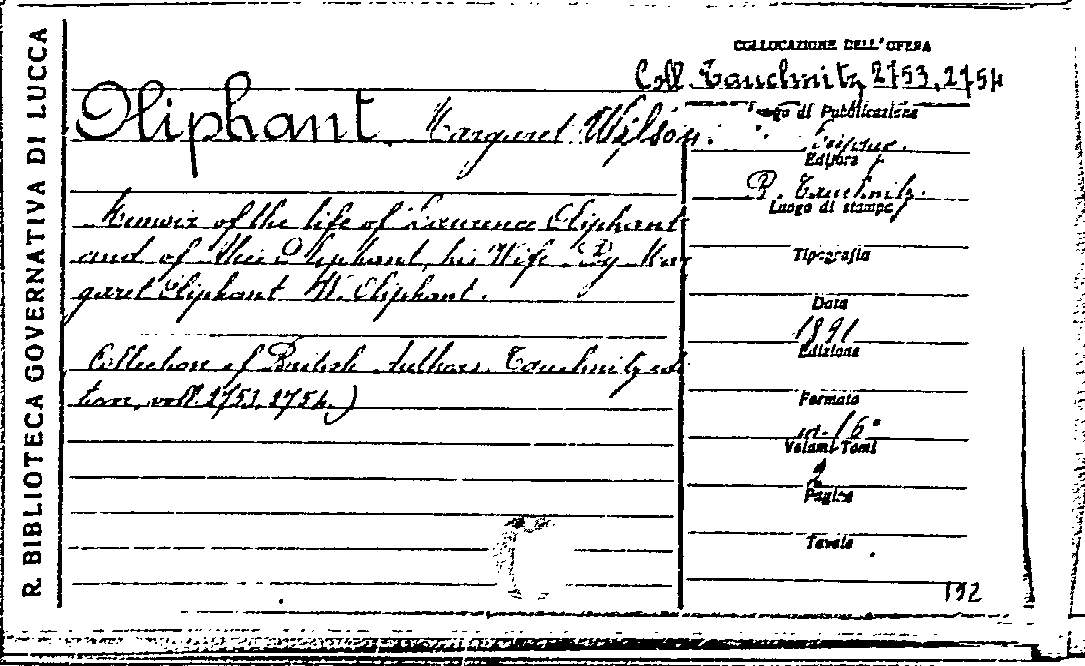 R. BIBLIOTECA GOVERNATIVA DI LUCCA
COLLOCAZIONE DELL'OPERA
Coll. Tauchnitz 2753, 2754
Oliphant Margaret Wilson.
Memoir of the life of Laurence Oliphant
and of Alice Oliphant, his Wife. By Mar
garet Oliphant W. Oliphant.
Collection of British Authors. Tauchnitz edi
tion, voll. 2753, 2754.)
Luogo di Pubblicazione
Leipzig.
Editore
B. Tauchnitz.
Luogo di stampa
Tipografia
Data
1891
Edizione
Formato
in-16°
Volumi-Tomi
2
Pagine
Tavole
192